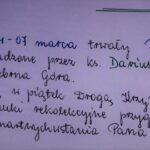 - 07 marca trwały
dzone przez ks. Dariusz
ebrna Góra.
w piątek Drogą Krzy
uki rekolekcyjne przyg
martwychwstania Pana